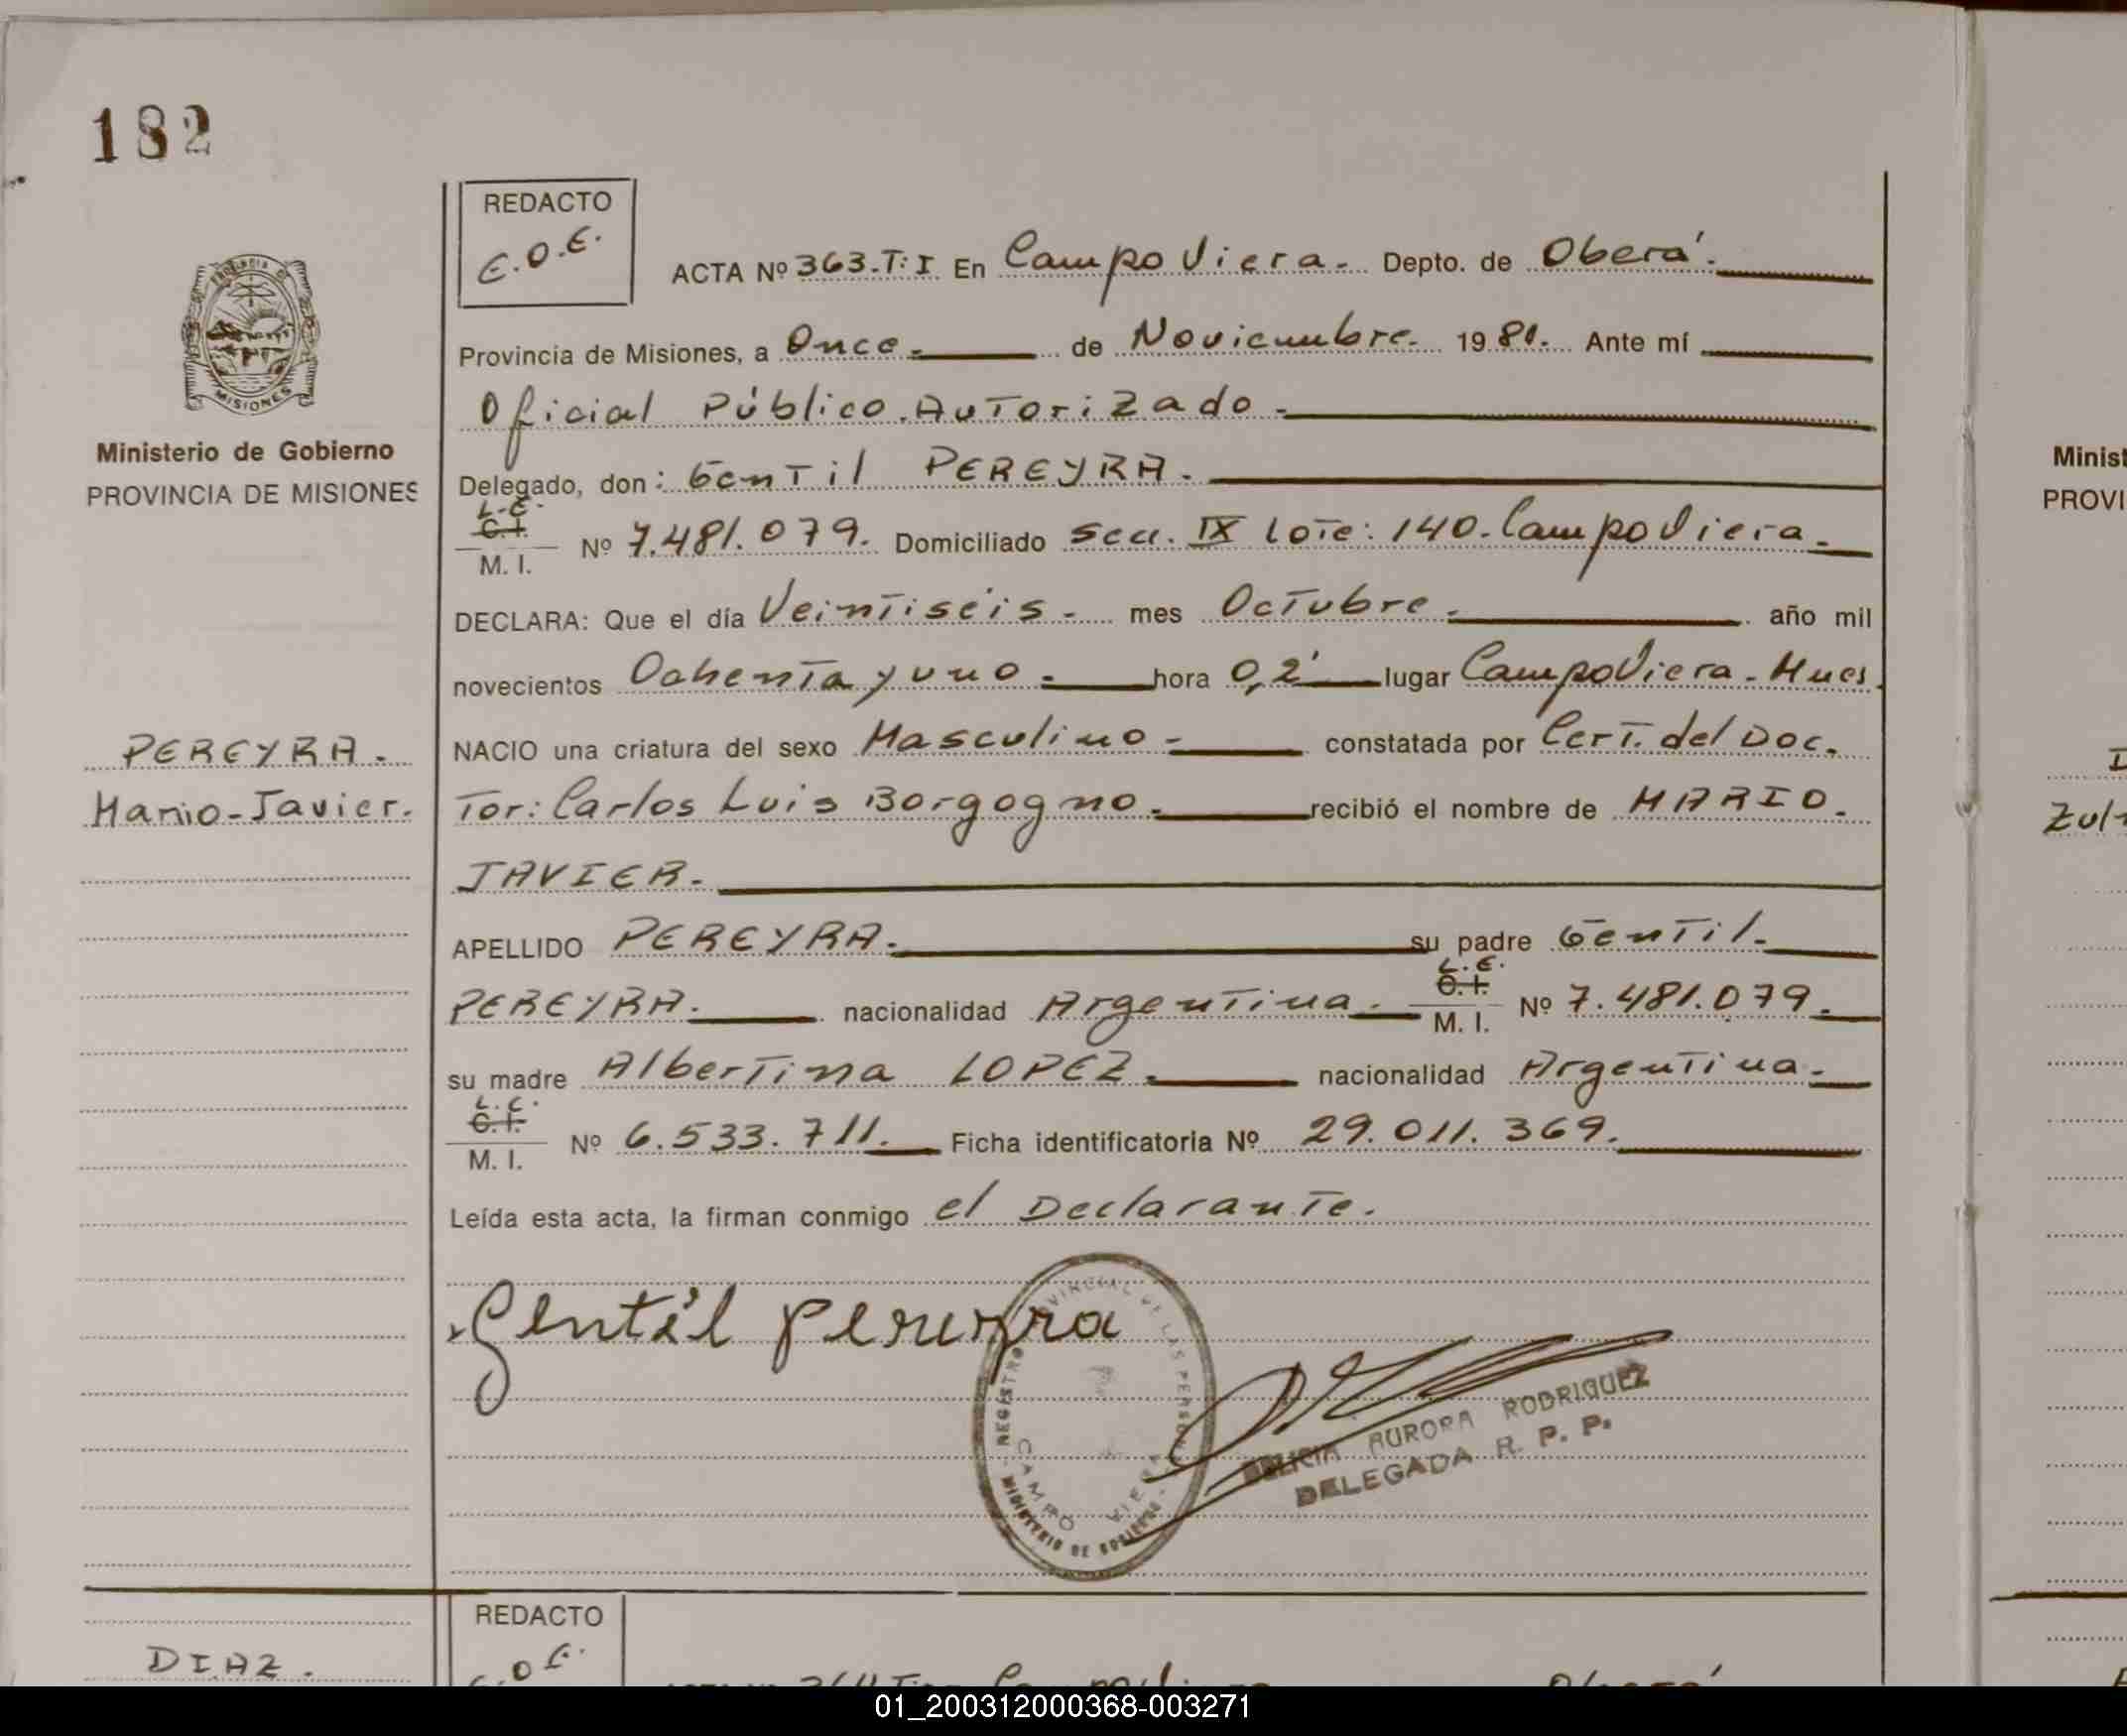 182
REDACTO
E.O.E.
ACTA Nº 363.T:I En Campo Viera.- Depto. de Oberá.
Provincia de Misiones, a Once.- de Noviembre. 1981. Ante mí
Oficial Público.Autorizado.-
Ministerio de Gobierno
PROVINCIA DE MISIONES
MISIONES
Delegado, don: Gentil PEREYRA.
L.E.
C.I.
M. I.
Nº 7.481.079. Domiciliado Secc. IX Lote: 140. Campo Viera.-
DECLARA: Que el día Veintiséis.- mes Octubre.- año mil
novecientos Ochenta y uno.- hora 0,2' lugar Campo Viera.- Mnes.
NACIO una criatura del sexo Masculino.- constatada por Cert. del Doc.
PEREYRA.
Mario-Javier.
Tor: Carlos Luis Borgogno.- recibió el nombre de MARIO.
JAVIER.
APELLIDO PEREYRA.- su padre Gentil.-
PEREYRA.- nacionalidad Argentina.-
L.E.
C.I.
M. I.
Nº 7.481.079.
su madre Albertina LOPEZ.- nacionalidad Argentina.-
L.C.
C.I.
M. I.
Nº 6.533.711. Ficha identificatoria Nº 29.011.369.
Leída esta acta, la firman conmigo el Declarante.
Gentil Pereyra
REGISTRO PROVINCIAL DE LAS PERSONAS
CAMPO VIERA
MINISTERIO DE GOBIERNO
AURORA RODRIGUEZ
DELEGADA R. P. P.
REDACTO
DIAZ.
01_200312000368-003271